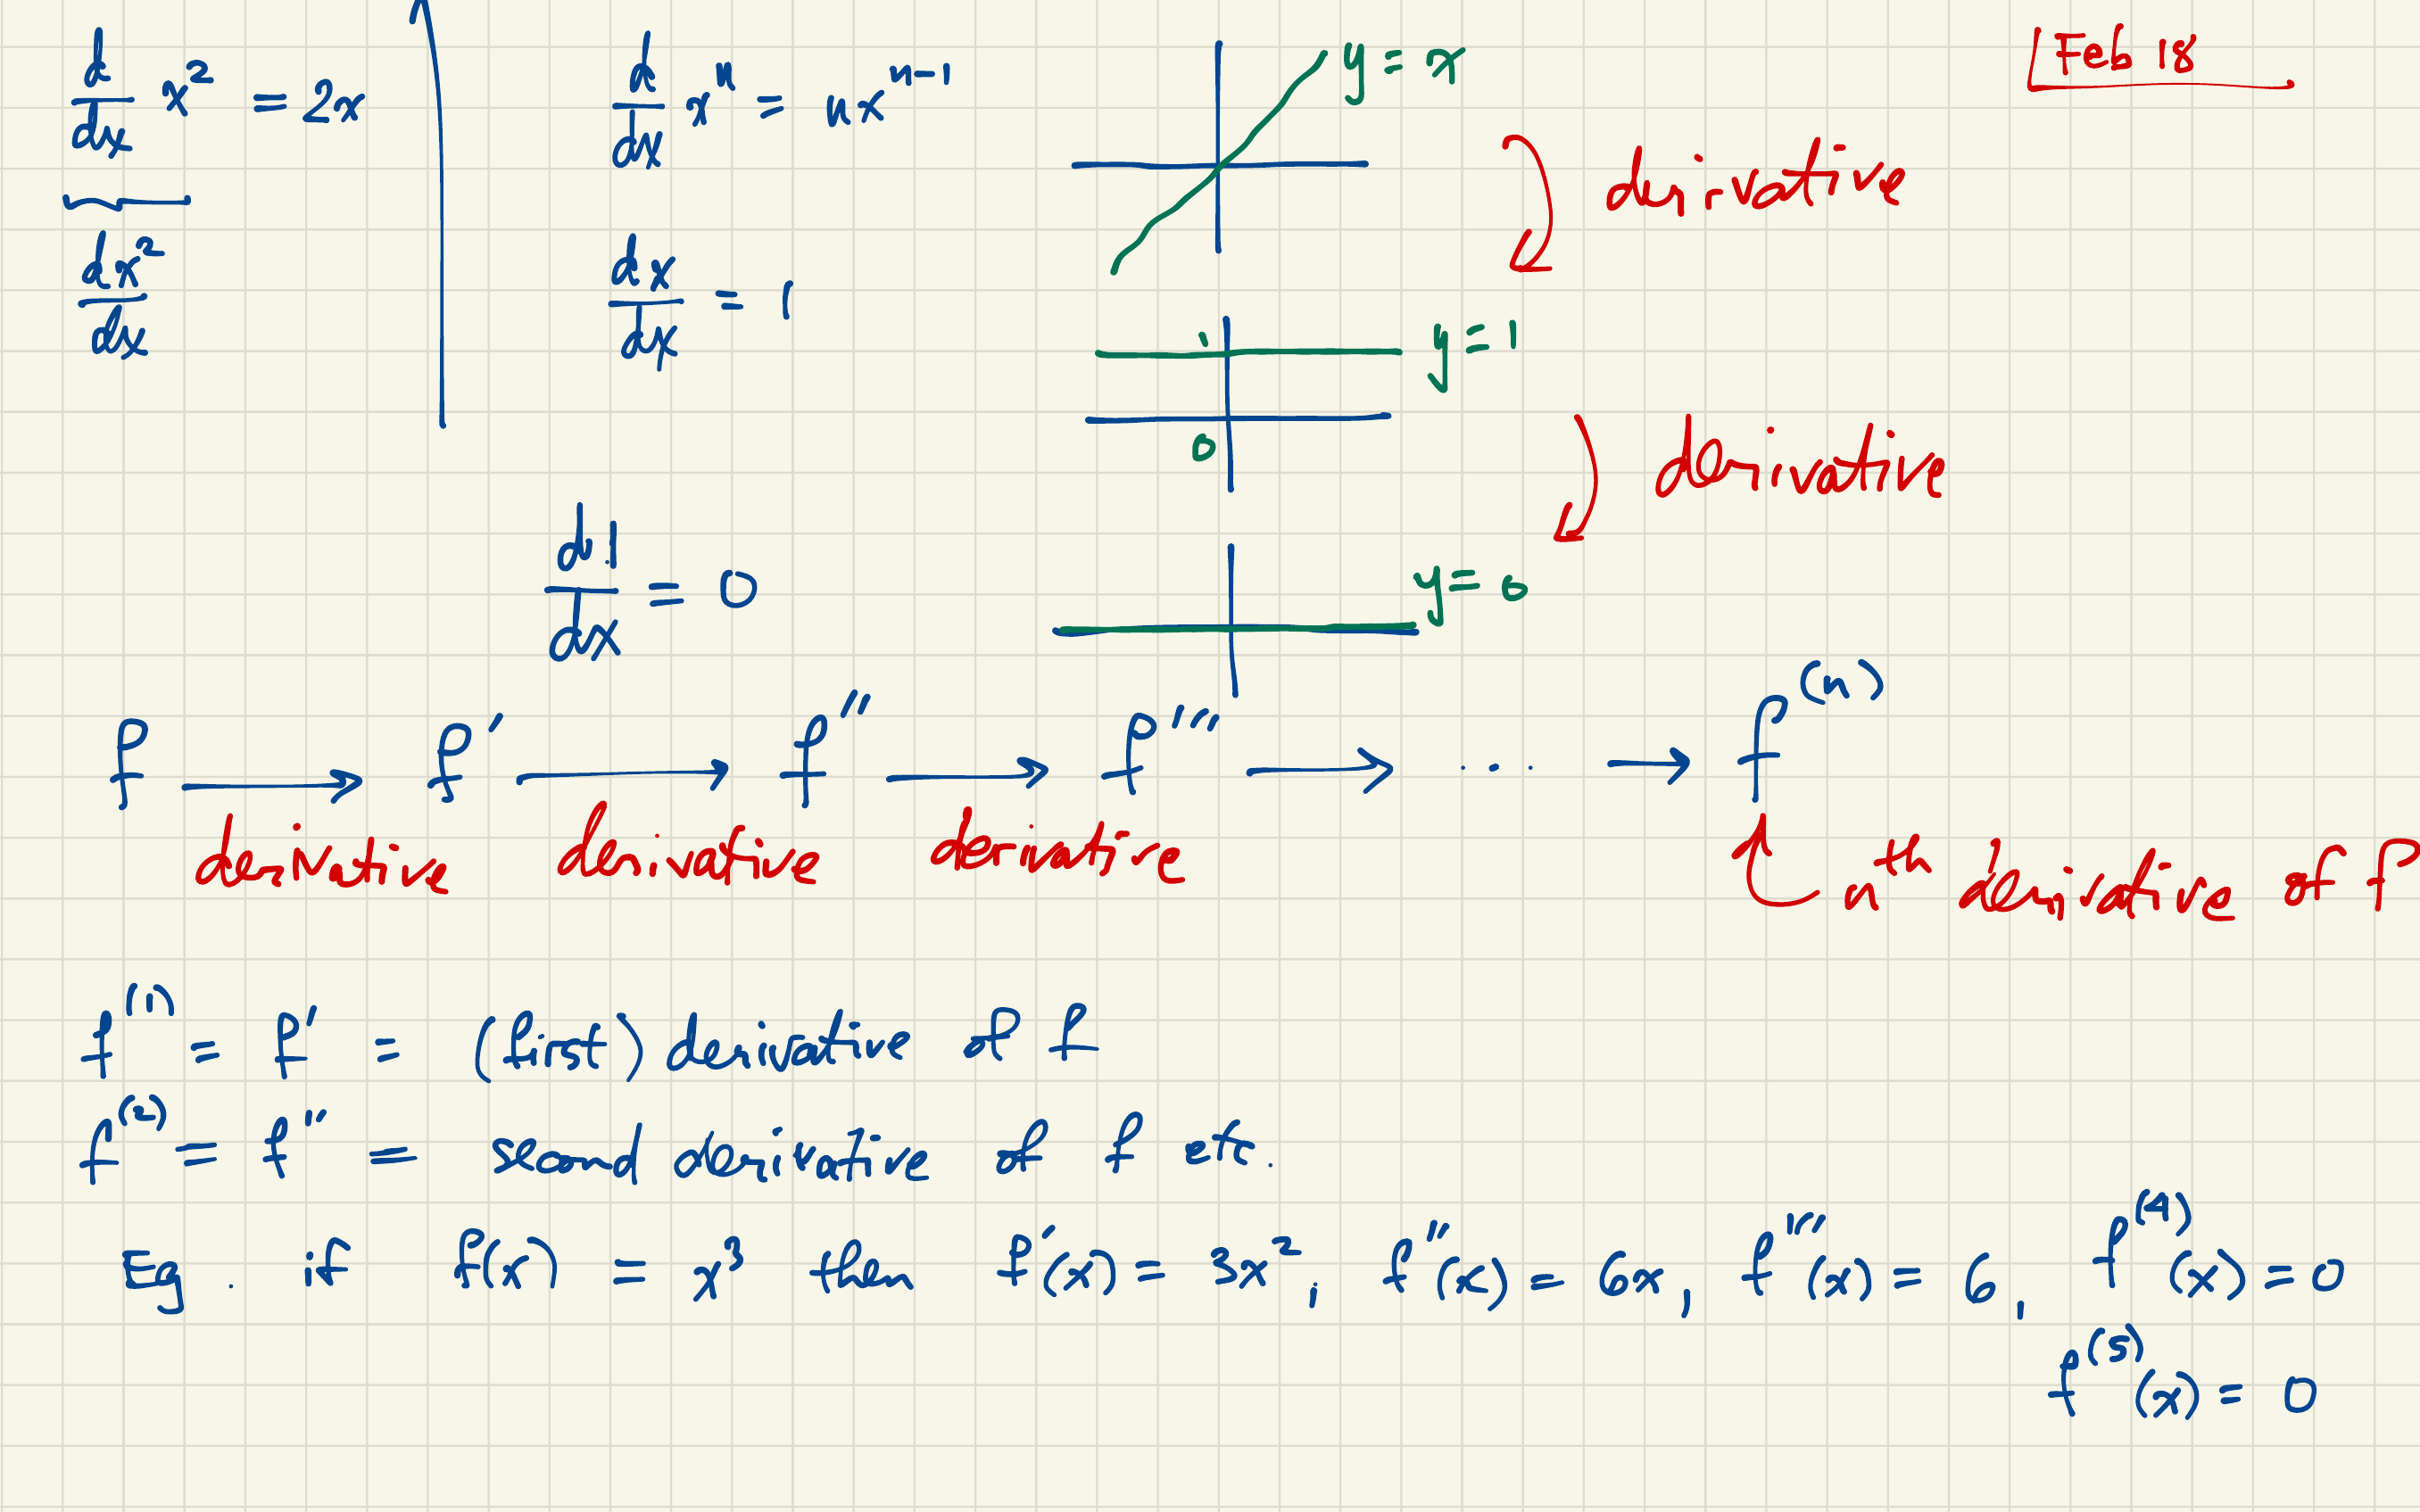 Feb 18
d/dx x² = 2x
dx²/dx
d/dx xⁿ = nxⁿ⁻¹
dx/dx = 1
y = x
derivative
1
y = 1
0
derivative
d1/dx = 0
y = 0
f → f' → f'' → f''' → ... → f⁽ⁿ⁾
derivative derivative derivative nth derivative of f
f⁽¹⁾ = f' = (first) derivative of f
f⁽²⁾ = f'' = second derivative of f etc.
Eg. if f(x) = x³ then f'(x) = 3x², f''(x) = 6x, f'''(x) = 6, f⁽⁴⁾(x) = 0
f⁽⁵⁾(x) = 0